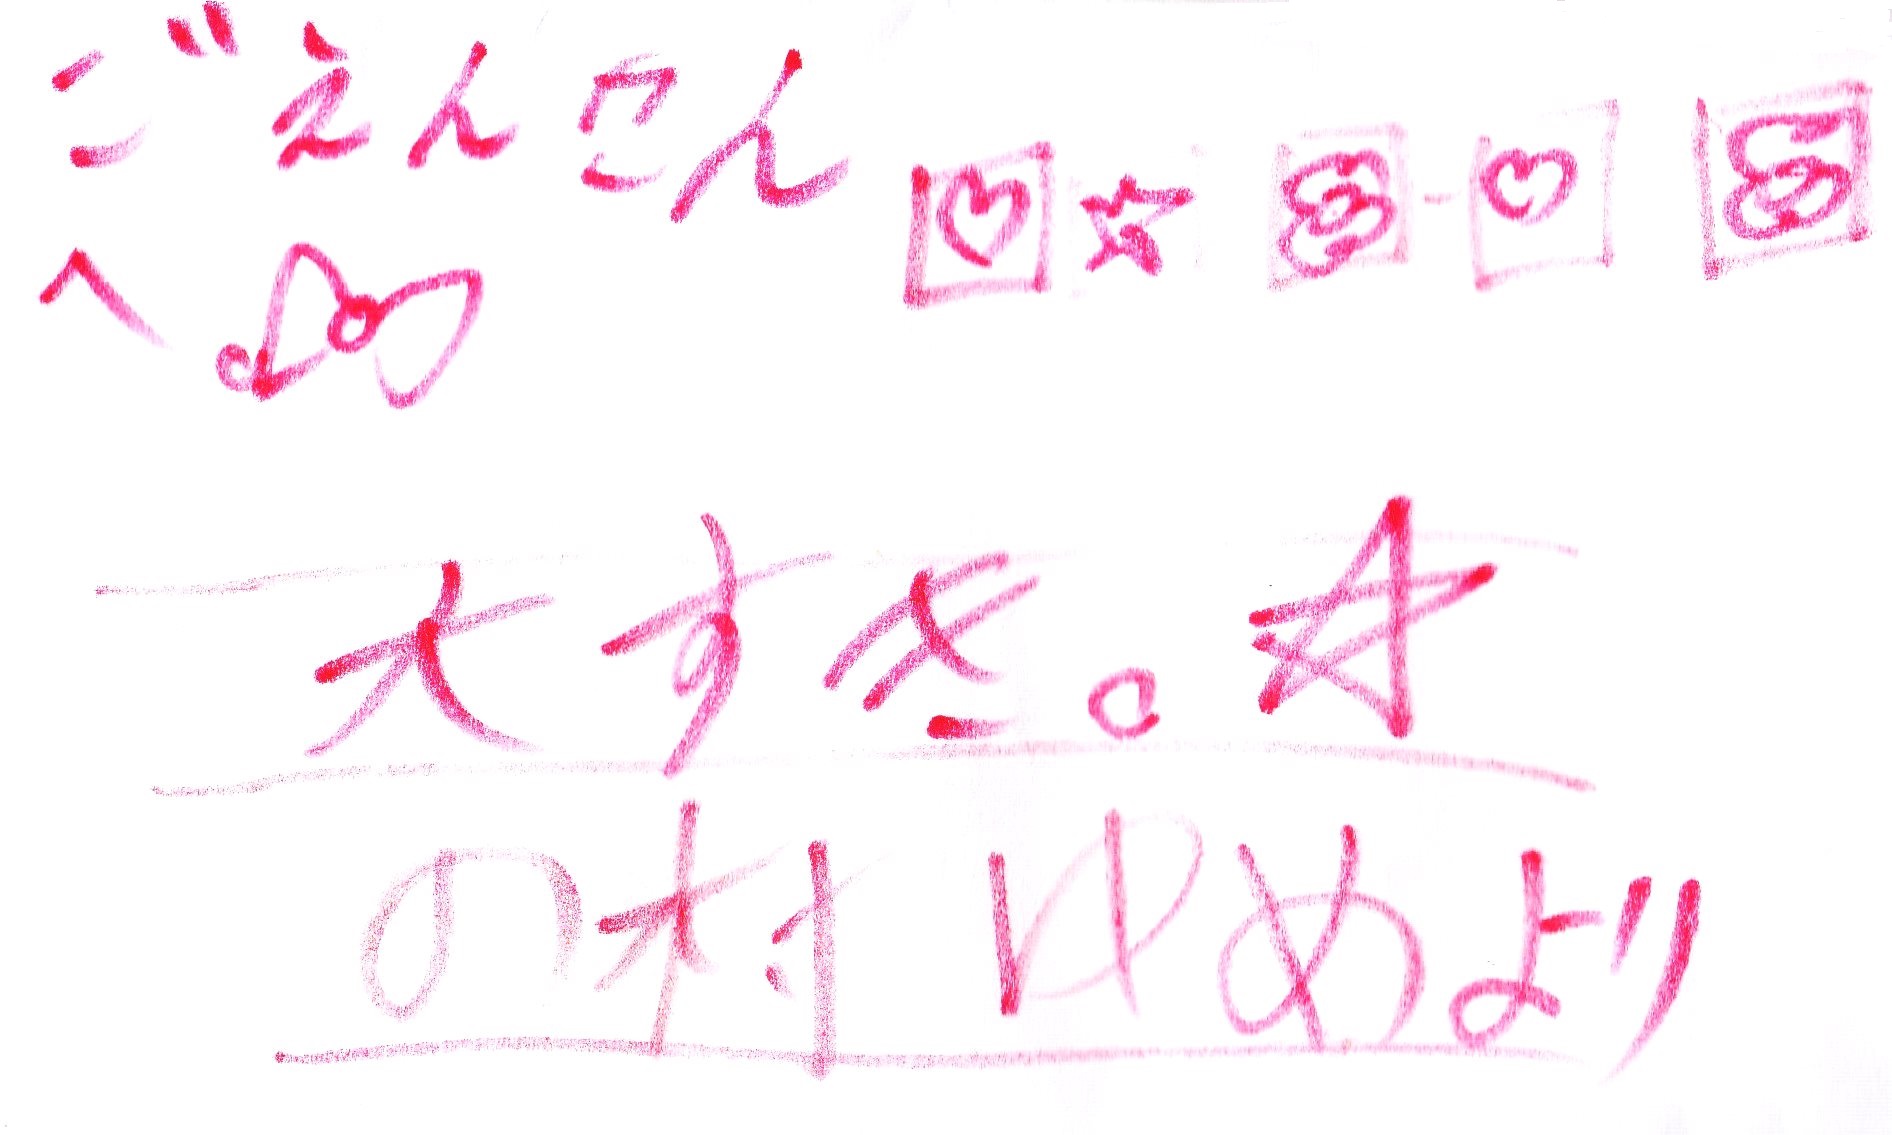 ごえんこん
へ
大すき。☆
の村ゆめより